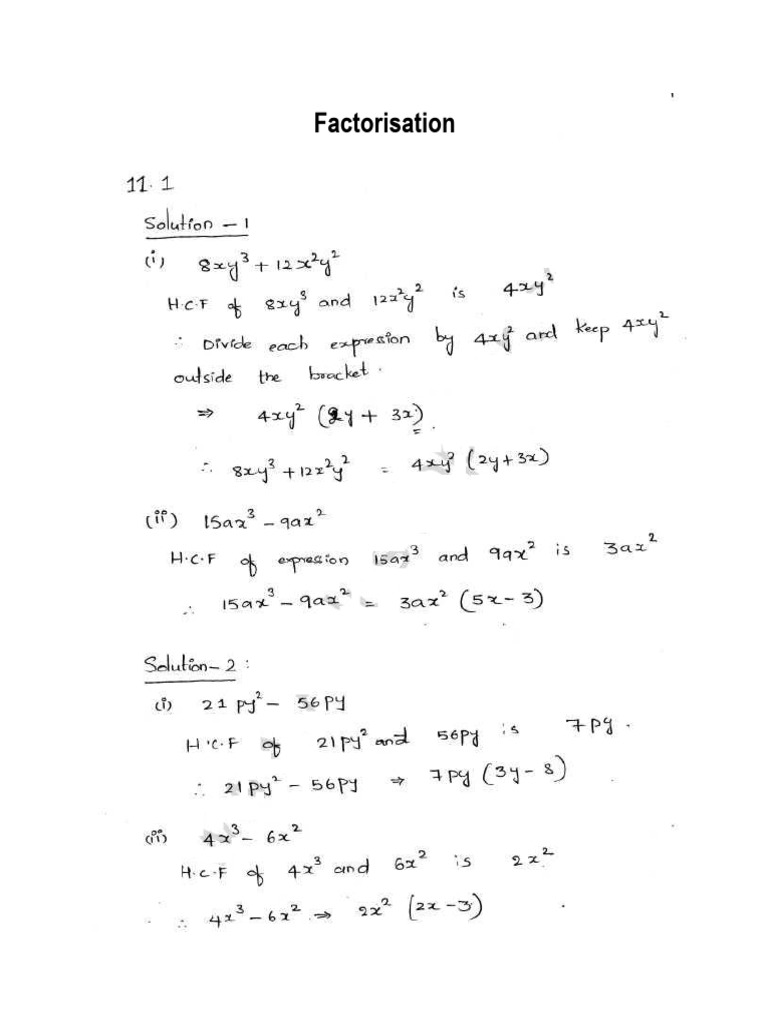 Factorisation
11.1
Solution - 1
(i) 8xy³ + 12x²y²
H.C.F of 8xy³ and 12x²y² is 4xy²
∴ Divide each expresion by 4xy² and keep 4xy²
outside the bracket.
⇒ 4xy² (2y + 3x).
∴ 8xy³ + 12x²y² = 4xy² (2y + 3x)
(ii) 15ax³ - 9ax²
H.C.F of expresion 15ax³ and 9ax² is 3ax²
∴ 15ax³ - 9ax² = 3ax² (5x - 3)
Solution - 2 :
(i) 21 py² - 56py
H.C.F of 21py² and 56py is 7py.
∴ 21py² - 56py ⇒ 7py (3y - 8)
(ii) 4x³ - 6x²
H.C.F of 4x³ and 6x² is 2x².
∴ 4x³ - 6x² ⇒ 2x² (2x - 3)